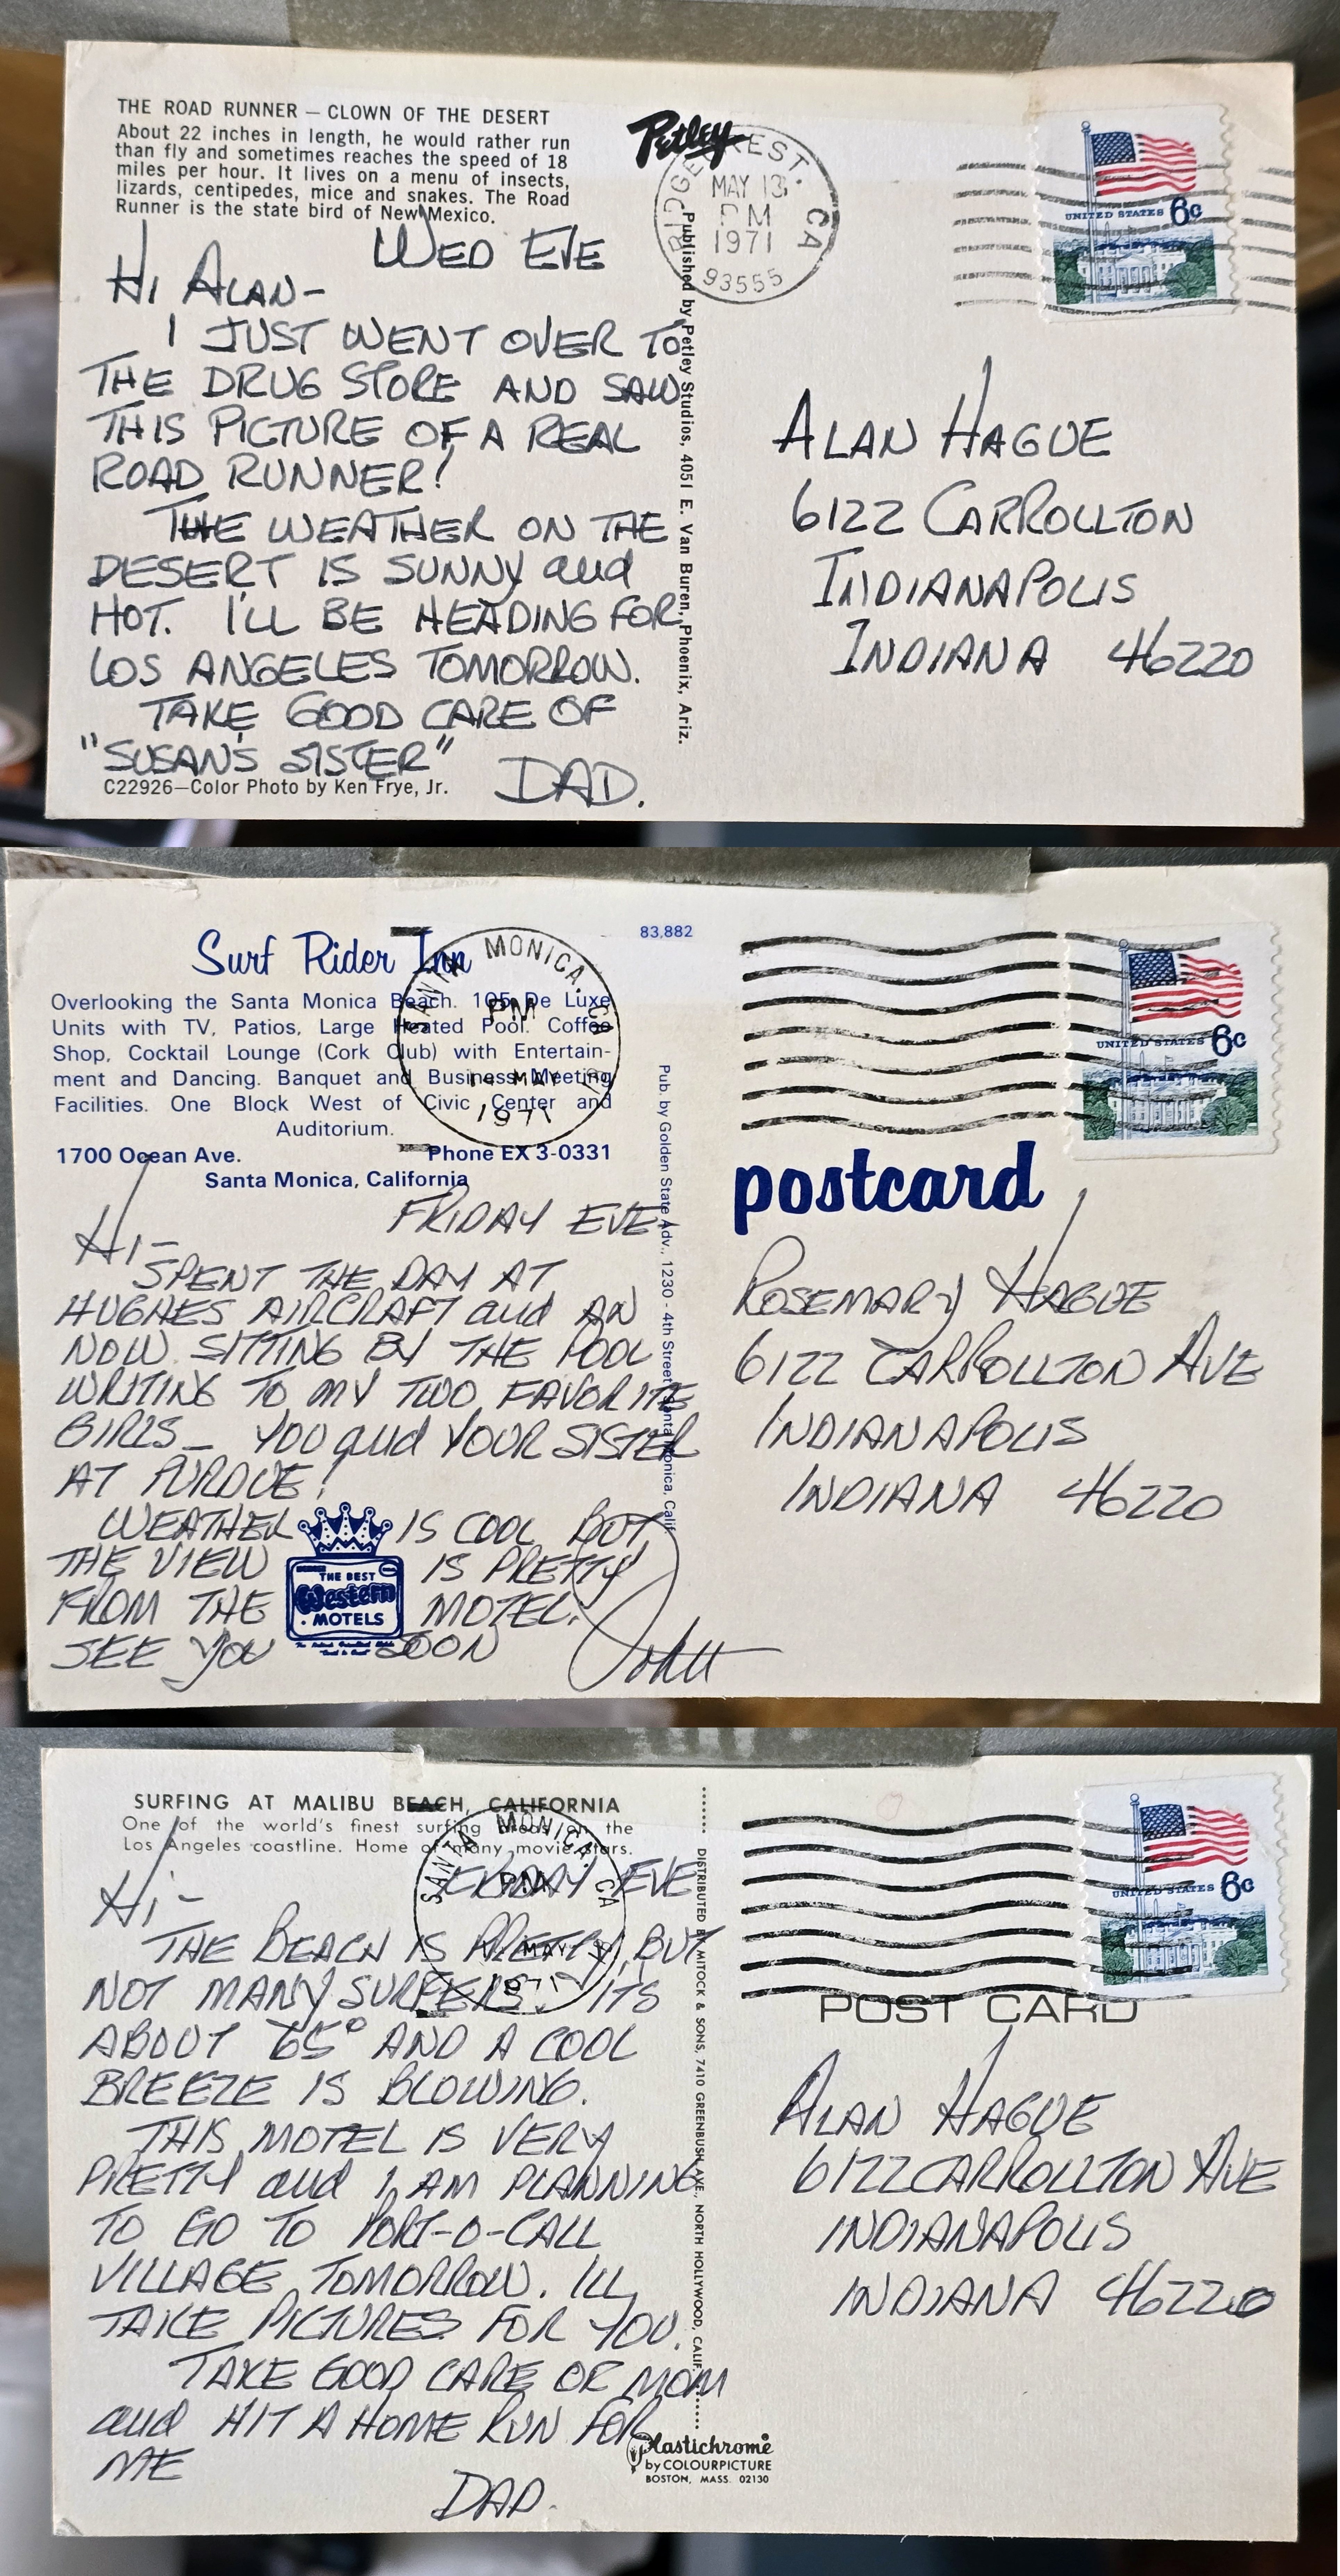 THE ROAD RUNNER — CLOWN OF THE DESERT
About 22 inches in length, he would rather run
than fly and sometimes reaches the speed of 18
miles per hour. It lives on a menu of insects,
lizards, centipedes, mice and snakes. The Road
Runner is the state bird of New Mexico.
WED EVE
HI ALAN-
I JUST WENT OVER TO
THE DRUG STORE AND SAW
THIS PICTURE OF A REAL
ROAD RUNNER!
THE WEATHER ON THE
DESERT IS SUNNY and
HOT. I'LL BE HEADING FOR
LOS ANGELES TOMORROW.
TAKE GOOD CARE OF
"SUSAN'S SISTER"
DAD.
C22926—Color Photo by Ken Frye, Jr.
Petley
Published by Petley Studios, 4051 E. Van Buren, Phoenix, Ariz.
RIDGECREST, CA
MAY 13
PM
1971
93555
UNITED STATES 6c
ALAN HAGUE
6122 CARROLLTON
INDIANAPOLIS
INDIANA 46220
Surf Rider Inn
83,882
Overlooking the Santa Monica Beach. 105 De Luxe
Units with TV, Patios, Large Heated Pool. Coffee
Shop, Cocktail Lounge (Cork Club) with Entertain-
ment and Dancing. Banquet and Business Meeting
Facilities. One Block West of Civic Center and
Auditorium.
1700 Ocean Ave. Phone EX 3-0331
Santa Monica, California
SANTA MONICA, CA
PM
MAY
1971
FRIDAY EVE-
HI-
SPENT THE DAY AT
HUGHES AIRCRAFT and AN
NOW SITTING BY THE POOL
WRITING TO MY TWO FAVORITE
GIRLS_ YOU and YOUR SISTER
AT PURDUE!
WEATHER IS COOL BUT
THE VIEW IS PRETTY
FROM THE MOTEL.
SEE YOU SOON
John
THE BEST
Western
MOTELS
Pub. by Golden State Adv., 1230 - 4th Street, Santa Monica, Calif.
UNITED STATES 6c
postcard
ROSEMARY HAGUE
6122 CARROLLTON AVE
INDIANAPOLIS
INDIANA 46220
SURFING AT MALIBU BEACH, CALIFORNIA
One of the world's finest surfing areas on the
Los Angeles coastline. Home of many movie stars.
SANTA MONICA, CA
PM
MAY
1971
FRIDAY EVE
HI-
THE BEACH IS PRETTY, BUT
NOT MANY SURFERS. ITS
ABOUT 65° AND A COOL
BREEZE IS BLOWING.
THIS MOTEL IS VERY
PRETTY and I AM PLANNING
TO GO TO PORT-O-CALL
VILLAGE TOMORROW. ILL
TAKE PICTURES FOR YOU.
TAKE GOOD CARE OF MOM
and HIT A HOME RUN FOR
ME
DAD.
DISTRIBUTED BY MITOCK & SONS, 7410 GREENBUSH AVE., NORTH HOLLYWOOD, CALIF.
Plastichrome
by COLOURPICTURE
BOSTON, MASS. 02130
UNITED STATES 6c
POST CARD
ALAN HAGUE
6122 CARROLLTON AVE
INDIANAPOLIS
INDIANA 46220